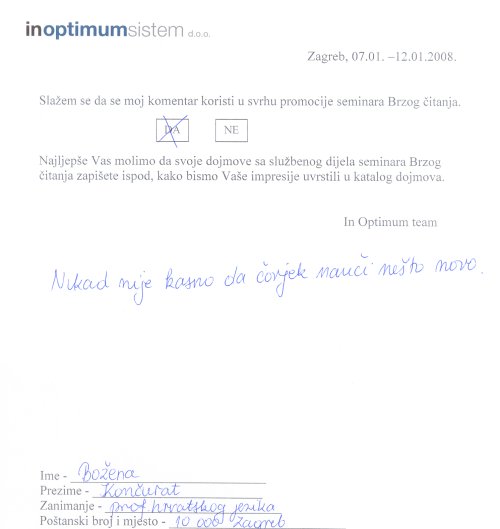 inoptimumsistem d.o.o.
Zagreb, 07.01. –12.01.2008.
Slažem se da se moj komentar koristi u svrhu promocije seminara Brzog čitanja.
DA NE
Najljepše Vas molimo da svoje dojmove sa službenog dijela seminara Brzog
čitanja zapišete ispod, kako bismo Vaše impresije uvrstili u katalog dojmova.
In Optimum team
Nikad nije kasno da čovjek nauči nešto novo.
Ime - Božena
Prezime - Končurat
Zanimanje - prof. hrvatskog jezika
Poštanski broj i mjesto - 10 000 Zagreb